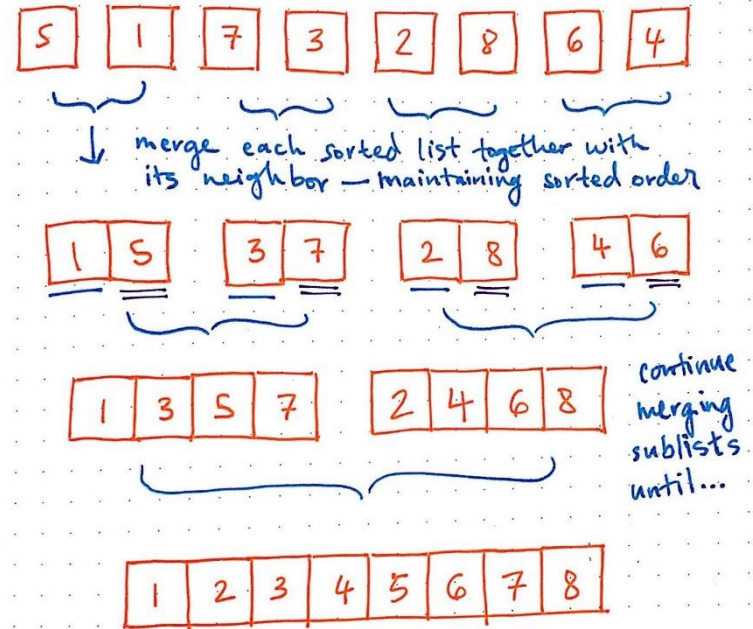 5 1 7 3 2 8 6 4
↓ merge each sorted list together with
its neighbor — maintaining sorted order
1 5 3 7 2 8 4 6
1 3 5 7 2 4 6 8
continue
merging
sublists
until...
1 2 3 4 5 6 7 8